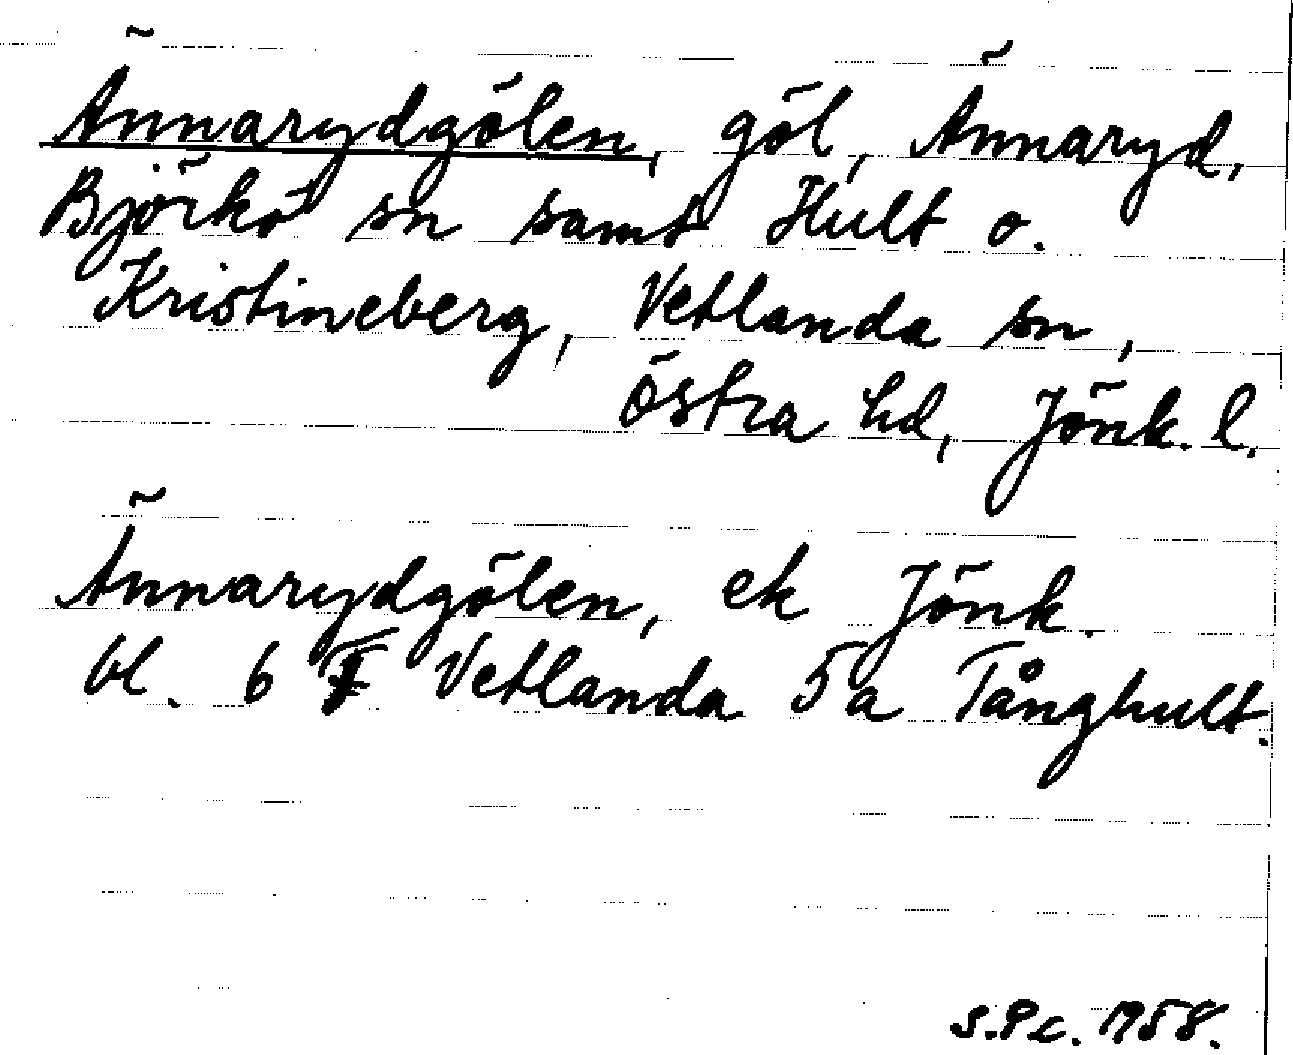 Ännarydgölen, göl, Ännaryd,
Björkö sn samt Hult o.
Kristineberg, Vetlanda sn,
Östra hd, Jönk. l.
Ännarydgölen, ek Jönk.
bl. 6 F Vetlanda 5a Tånghult.
S.P.c. 1958.